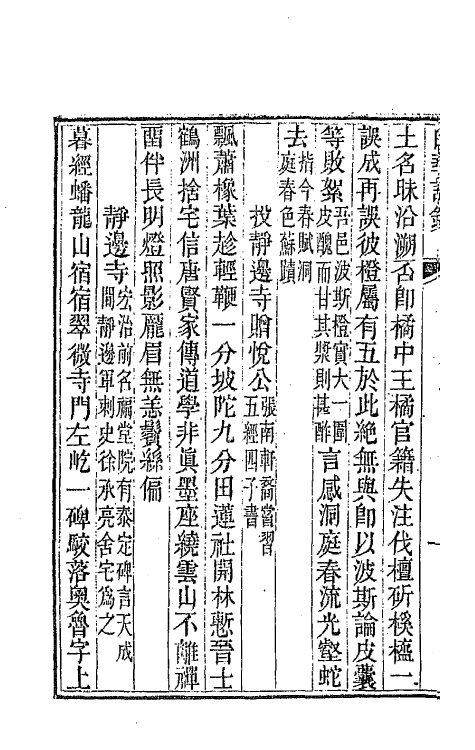 土名昧沿溯否卽橘中王橘官籍失注伐檀斫榽橀一
誤成再誤彼橙屬有五於此絶無與卽以波斯論皮囊
等敗絮吾邑波斯橙實大一圍皮醜而甘其漿則甚酢言感洞庭春流光壑蛇
去指今春賦洞庭春色蘇蹟
投靜邊寺贈悅公張南軒裔嘗習五經四子書
飄蕭橡葉趁輕鞭一分坡陀九分田蓮社開林慙晉士
鶴洲捨宅信唐賢家傳道學非眞墨座繞雲山不離禪
畱伴長明燈照影龐眉無恙鬢絲偏
靜邊寺宏治前名福堂院有泰定碑言天成閒靜邊軍刺史徐承亮舍宅爲之
暮經蟠龍山宿宿翠微寺門左屹一碑駮落奧魯字上